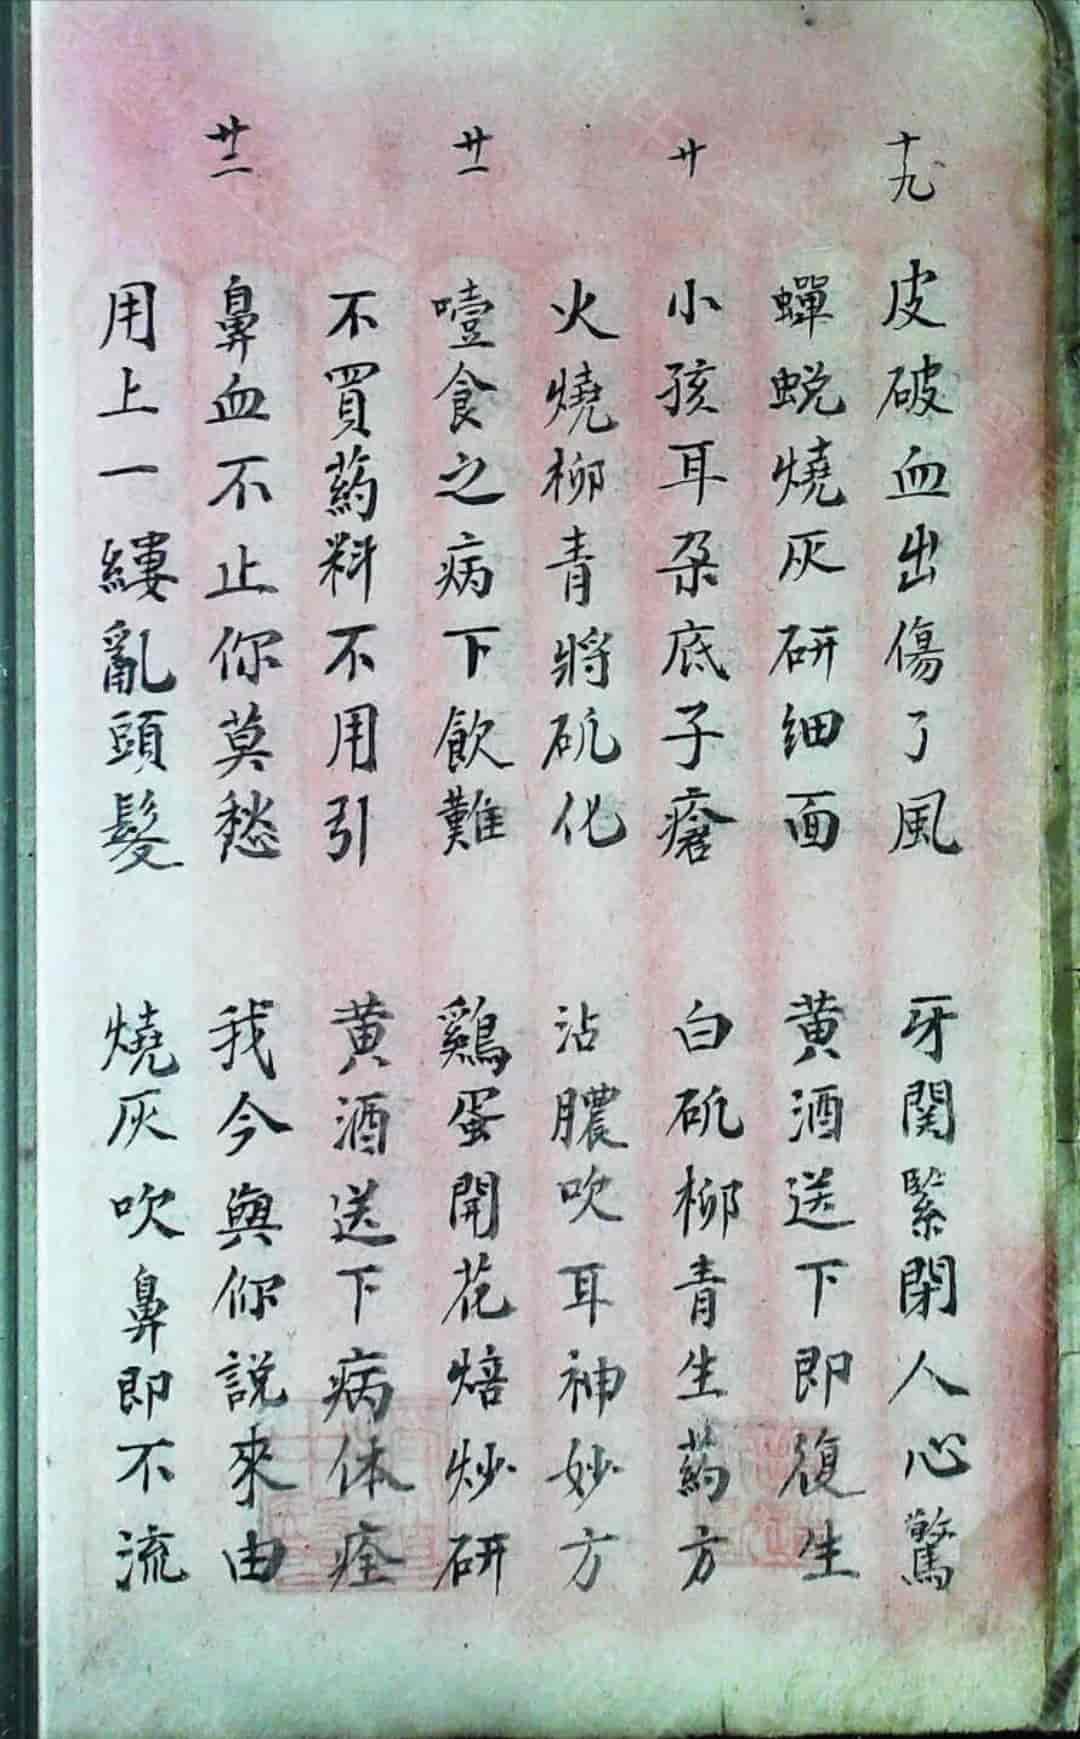 十九
皮破血出傷了風　牙関緊閉人心驚
蟬蜕燒灰研细面　黄酒送下即復生
廿
小孩耳朶底子瘡　白矾柳青生葯方
火燒柳青將矾化　沾膿吹耳神妙方
廿一
噎食之病下飲難　鷄蛋開花焙炒研
不買葯料不用引　黄酒送下病体痊
廿二
鼻血不止你莫愁　我今與你説來由
用上一縷亂頭髮　燒灰吹鼻即不流